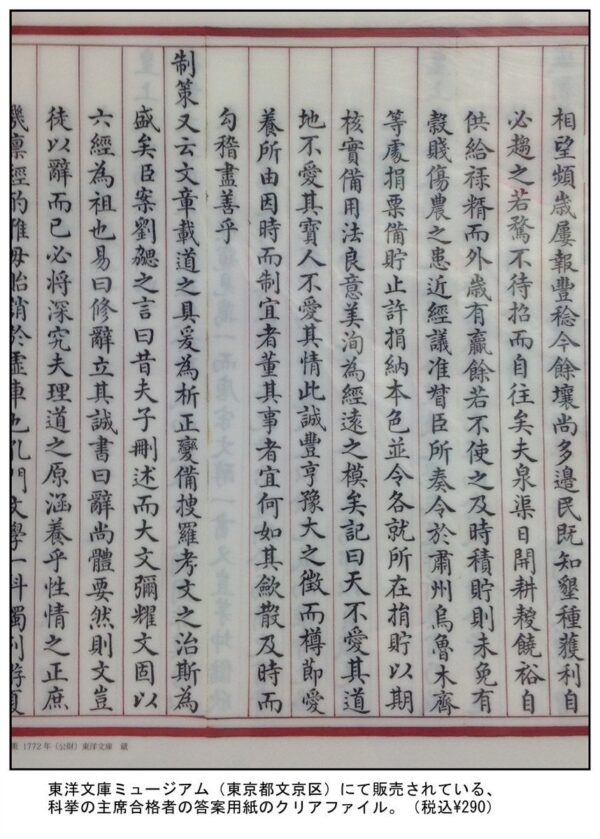 相望頻歲屢報豐稔今餘壤尚多邊民既知墾種獲利自
必趨之若鶩不待招而自往矣夫泉渠日開耕耰饒裕自
供給祿糈而外歲有贏餘若不使之及時積貯則未免有
穀賤傷農之患近經議准督臣所奏令於肅州烏魯木齊
等處捐粟備貯止許捐納本色並令各就所在捐貯以期
核實備用法良意美洵為經遠之模矣記曰天不愛其道
地不愛其寶人不愛其情此誠豐亨豫大之徵而樽節愛
養所由因時而制宜者董其事者宜何如其斂散及時而
勾稽盡善乎
制策又云文章載道之具爰為析正變備搜羅考文之治斯為
盛矣臣案劉勰之言曰昔夫子刪述而大文彌耀文固以
六經為祖也易曰修辭立其誠書曰辭尚體要然則文豈
徒以辭而已必將深究夫理道之原涵養乎性情之正庶
幾禀經酌雅毋貽誚於虛車也孔門文學一科獨列游夏
1772年（公財）東洋文庫 蔵
東洋文庫ミュージアム（東京都文京区）にて販売されている、
科挙の主席合格者の答案用紙のクリアファイル。（税込¥290）